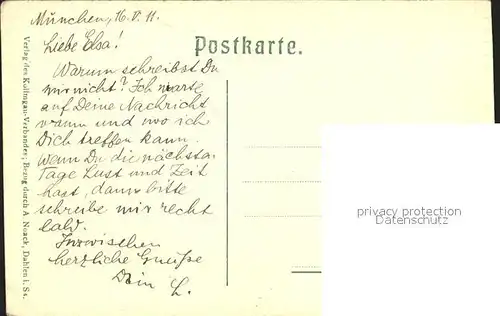 München, 16.V.11.
Liebe Elsa!
Postkarte.
Warum schreibst Du
mir nicht? Ich warte
auf Deine Nachricht
wann und wo ich
Dich treffen kann.
Wenn Du die nächsten
Tage Lust und Zeit
hast, dann bitte
schreibe mir recht
bald.
Inzwischen
herzliche Gruesse
Dein L.
Verlag des Kolmgau-Verbandes; Bezug durch A. Noack, Dahlen i. Sa.
privacy protection
Datenschutz